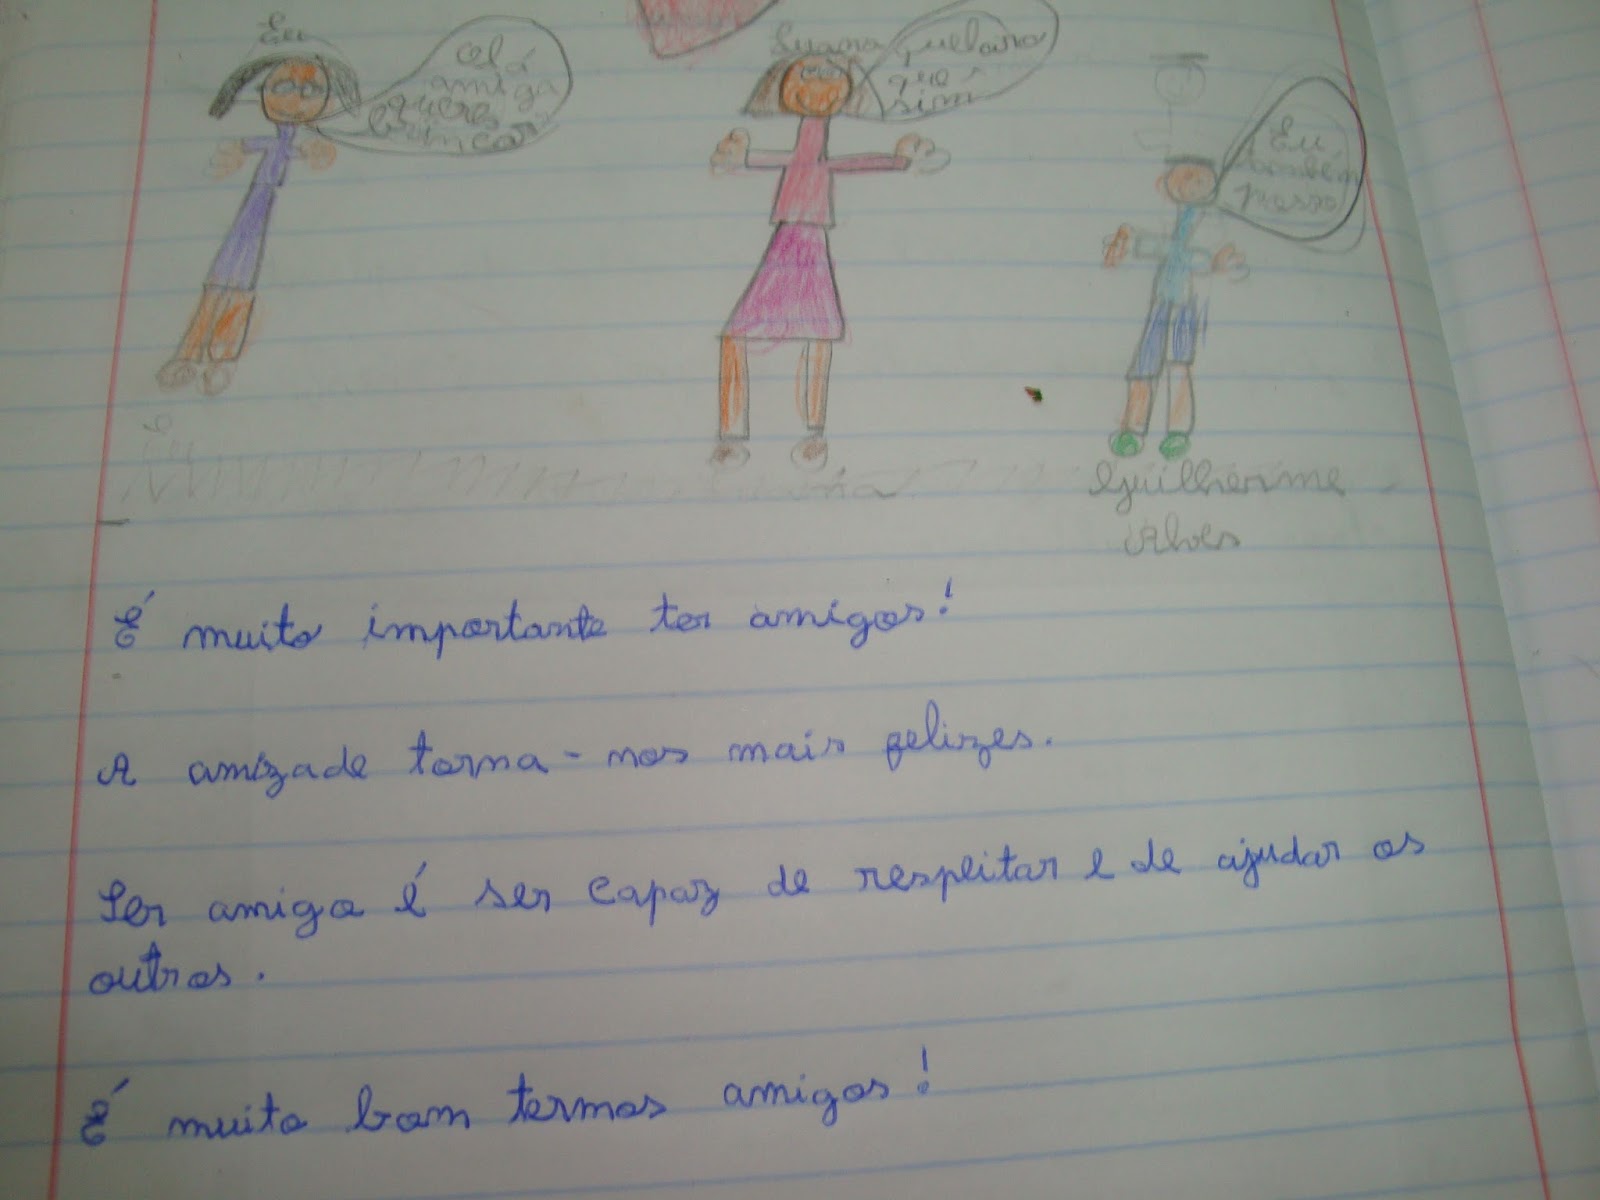 Eu
Olá
amiga
queres
brincar
Luana
que
sim
Eu
também
posso
Guilherme
Alves
É muito importante ter amigos!
A amizade torna-nos mais felizes.
Ser amigo é ser capaz de respeitar e de ajudar os
outros.
É muito bom termos amigos!